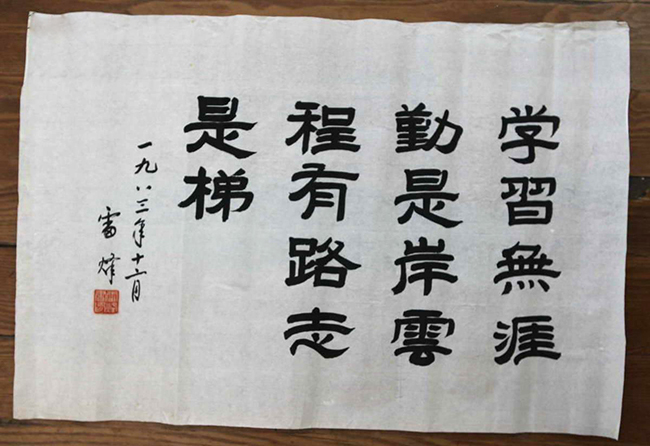 学習無涯
勤是岸雲
程有路志
是梯
一九八三年十二月
雷烽